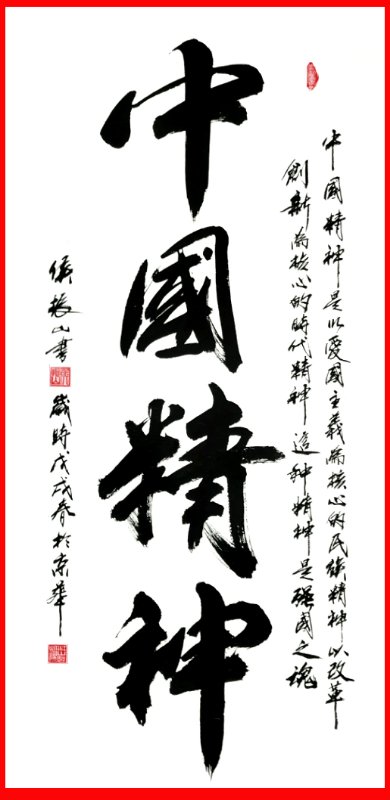 中國精神是以愛國主義為核心的民族精神以改革
創新為核心的時代精神這種精神是強國之魂
中國精神
侯拴山書歲時戊戌春於京華